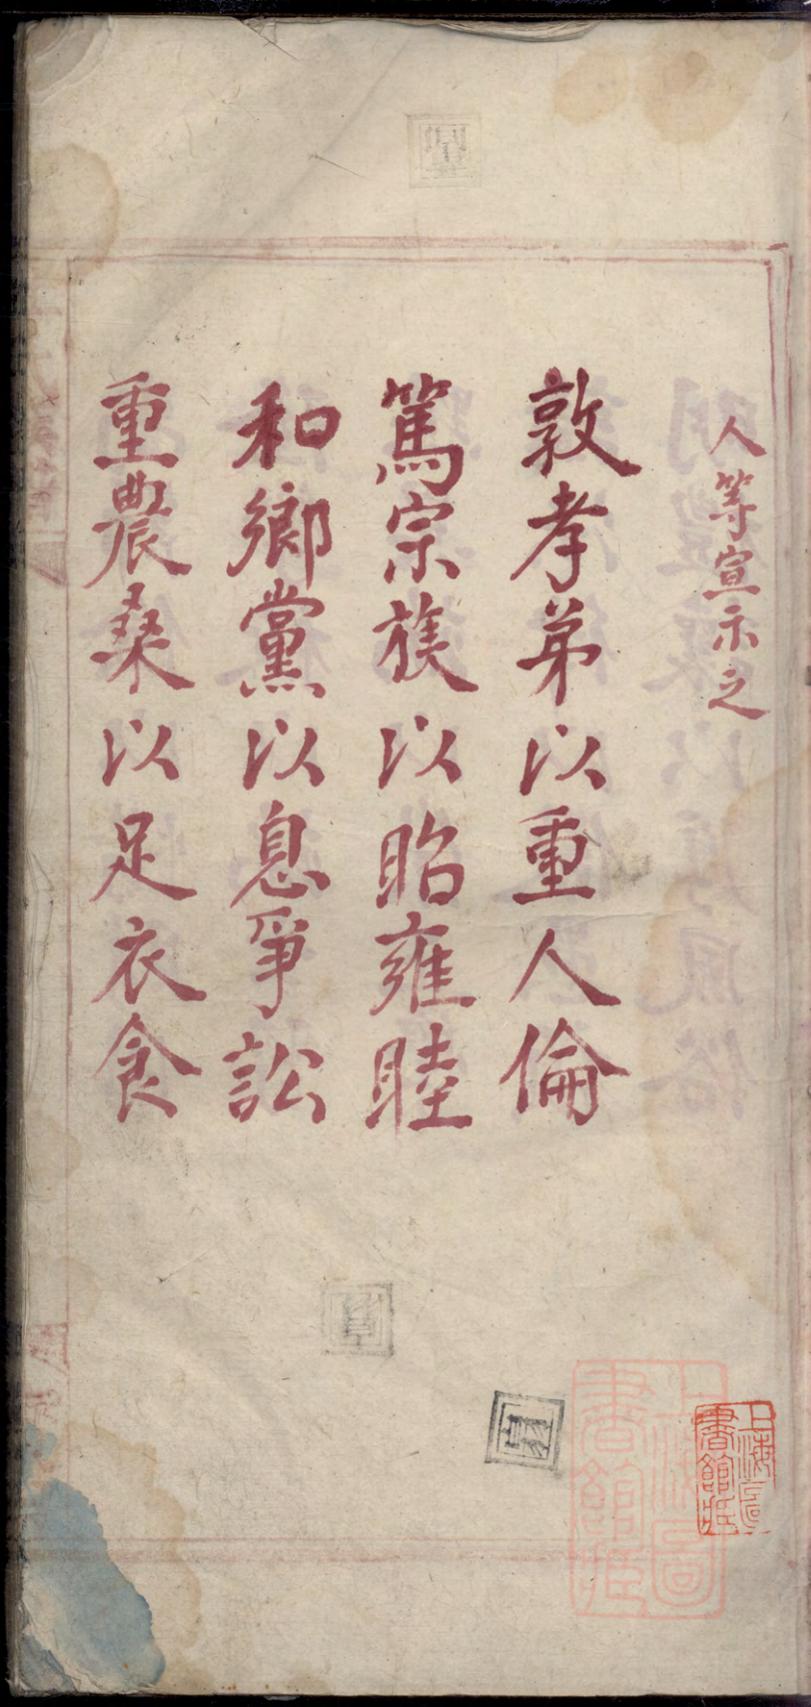 人等宣示之
敦孝弟以重人倫
篤宗族以昭雍睦
和鄉黨以息爭訟
重農桑以足衣食
上海圖書館藏